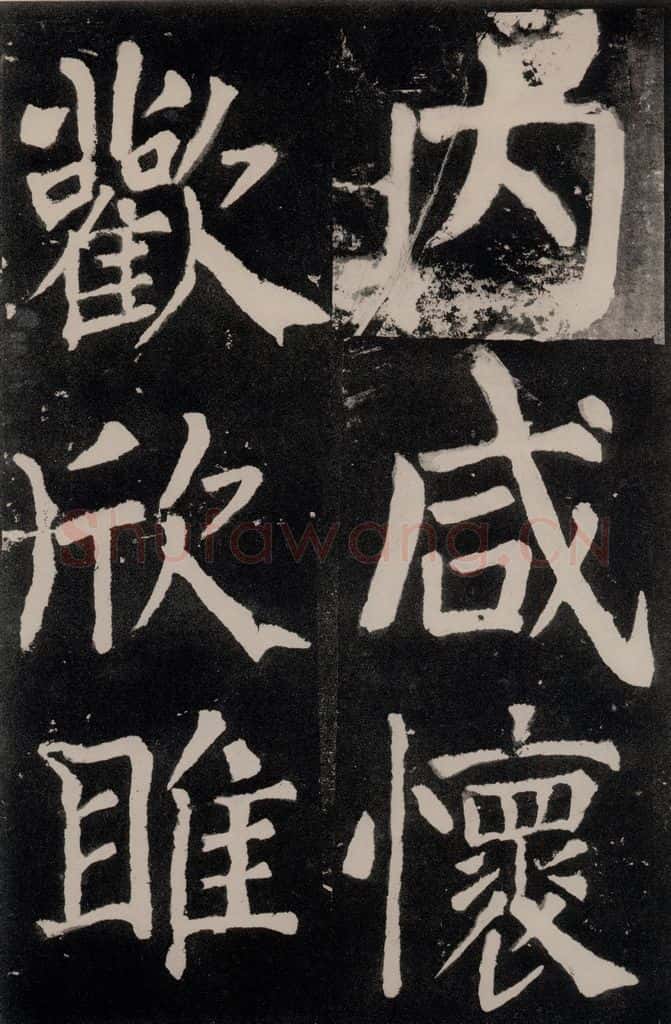 内咸懷
歡欣睢
Shufawang.CN